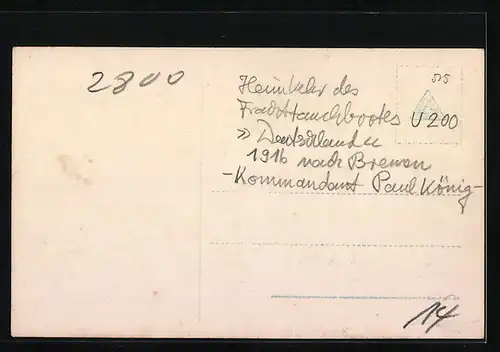 2800
515
Heimkehr des
Frachttauchbootes U 200
»Deutschland«
1916 nach Bremen
-Kommandant Paul König-
14